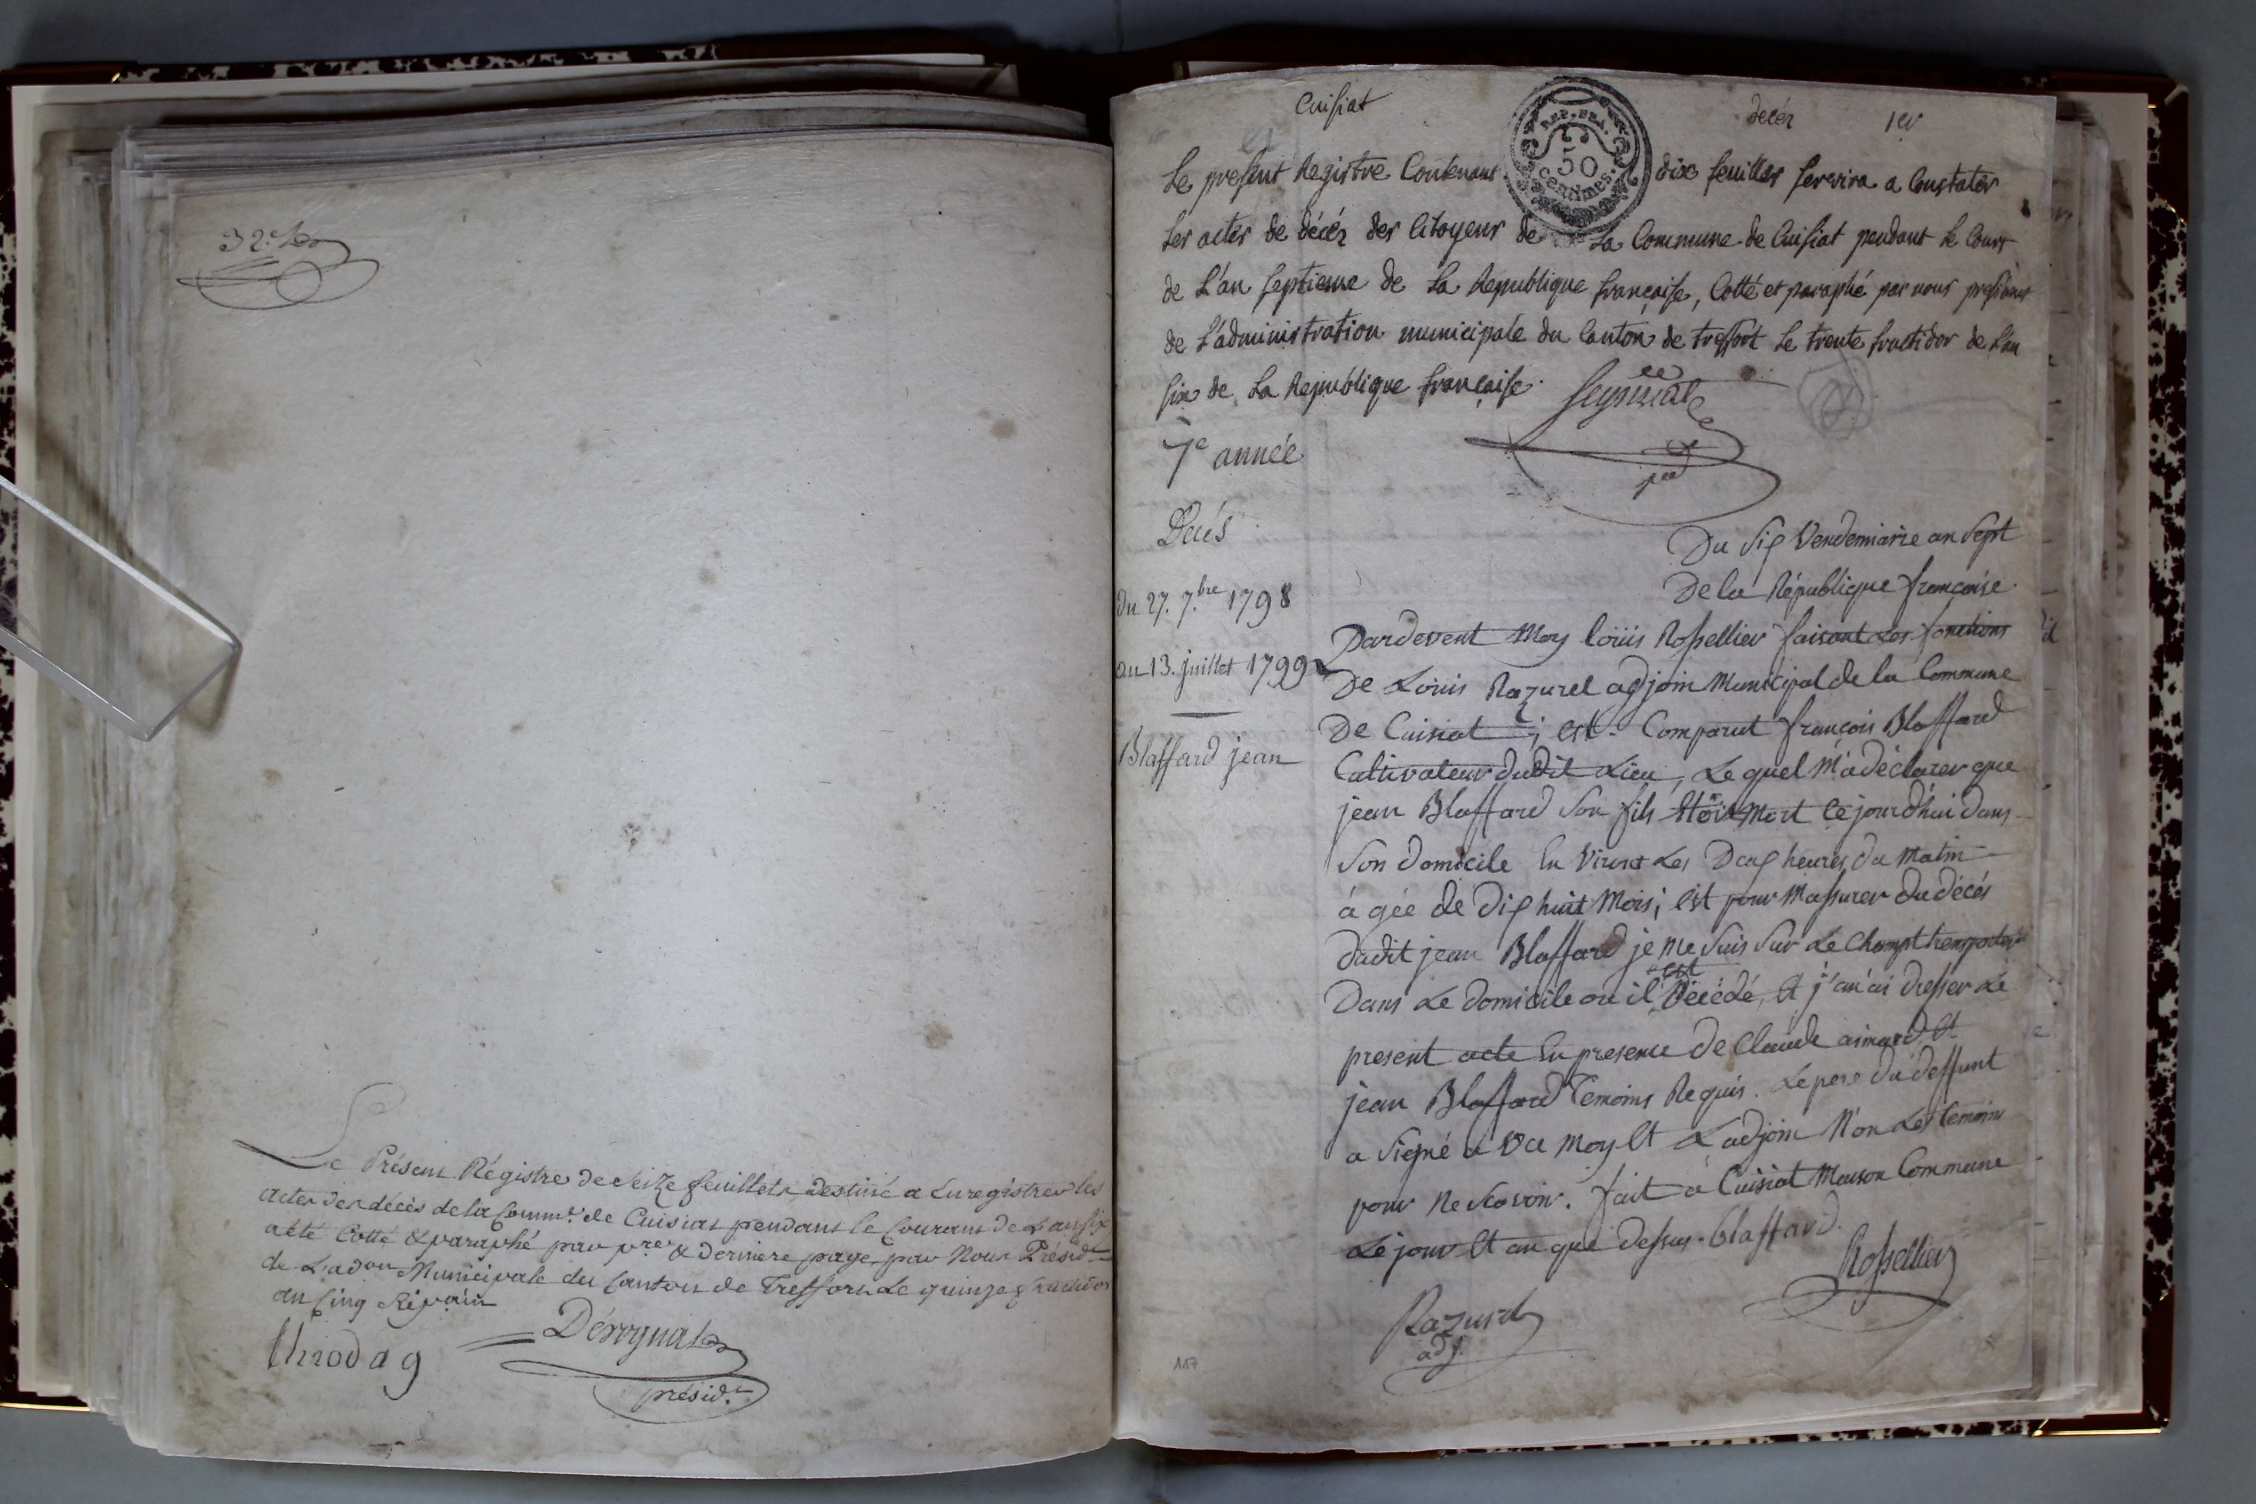 32.
Le Présent Régistre de Seize feuillets, destiné a Enregistrer les
actes des décès de la Comm.e de Cuisiat pendant le Courant de L'an six
a été Cotté & paraphé par p.re & derniere page, par Nous Présid.t
de L'ad.on Municipale du Canton de Treffort Le quinze fructidor
an Cinq Rép.ain
Dérognat
présid.t
Cuisiat
decéz
1er
REP. FRA.
50
centimes.
Le present Registre Contenant dix feuilles servira a Constater
Les actes de décéz des Citoyens de La Commune de Cuisiat pendant le Cours
de L'an septieme de La Republique française, Cotté et paraphé par nous president
de L'administration municipale du Canton de treffort Le trente fructidor de L'an
six de La Republique française.
7e année
Décés
du 27. 7.bre 1798
au 13. juillet 1799
Blaffard jean
Du six Vendemiaire an Sept
De la République francoise.
Pardevent Moy loüis Rossellier faisant Les fonctions
De Louis Razurel adjoin Municipal de la Commune
De Cuisiat ; est Comparut françois Blaffard
Cultivateur dudit Lieu, Le quel M'a déclarer que
jean Blaffard Son fils étoit Mort Cejourd'hui dans
Son domicile En Viron Les Deux heures du Matin
á gée de dix huit Mois ; est pour Massurer du décés
dudit jean Blaffard je me Suis Sur Le Champt transporter
Dans Le domicile ou il est Décédé, Et j'an ai dresser Le
present acte En presence de Claude aimard Et
jean Blaffard Temoins Requis. Le pere du deffunt
a Signé a Vec Moy Et L'adjoin Non Les temoins
pour Ne Scavoir. fait a Cuisiat Maison Commune
Le jour Et an que dessus. blaffard.
Rossellier
Razurel
adj.
117